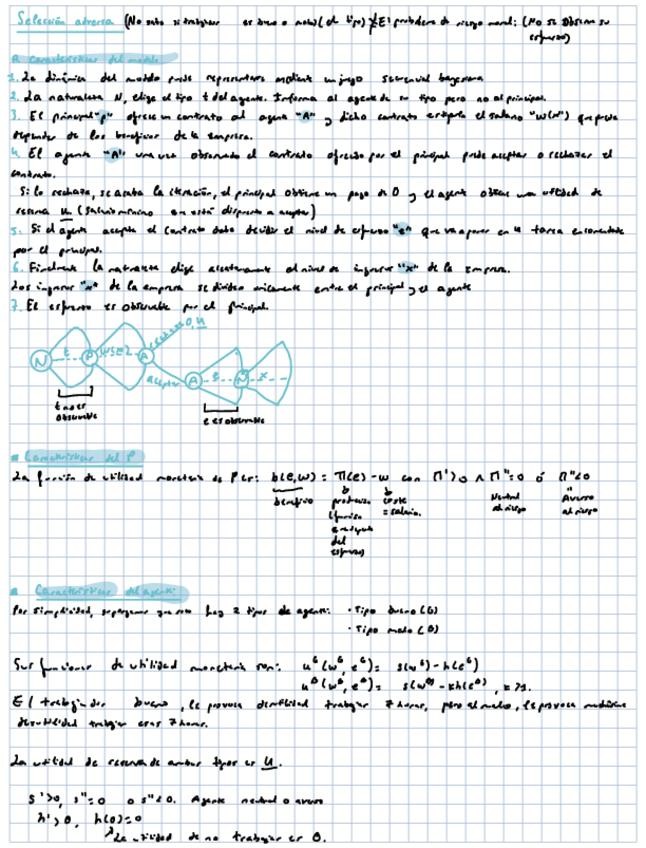 Selección adversa (No sabe si trabajador es bueno o malo (el tipo) ≠ El problema de riesgo moral: (No se observa su
esfuerzo)
A características del modelo
1. La dinámica del modelo puede representarse mediante un juego secuencial bayesiano
2. La naturaleza N, elige el tipo t del agente. Informa al agente de su tipo pero no al principal.
3. El principal "P" ofrece un contrato al agente "A" y dicho contrato estipula el salario "w(x)" que puede
depender de los beneficios de la empresa.
4. El agente "A" una vez observado el contrato ofrecido por el principal puede aceptar o rechazar el
contrato.
Si lo rechaza, se acaba la iteración, el principal obtiene un pago de 0 y el agente obtiene una utilidad de
reserva u (salario mínimo que está dispuesto a aceptar)
5. Si el agente acepta el contrato debe decidir el nivel de esfuerzo "e" que va a poner en la tarea encomendada
por el principal.
6. Finalmente la naturaleza elige aleatoriamente el nivel de ingresos "x" de la empresa.
Los ingresos "x" de la empresa se dividen únicamente entre el principal y el agente
7. El esfuerzo es observable por el principal.
rechazar 0, u
N t P A
aceptar A e N x
t no es
observable
e es observable
Características del P
La función de utilidad monetaria de P es: b(e,w) = Π(e) - w con Π'>0 ∧ Π''=0 ó Π''<0
beneficio
coste
= salario.
Neutral
al riesgo
Averso
al riesgo
del
esfuerzo
Características del agente:
Por simplicidad, supongamos que solo hay 2 tipos de agente: · Tipo bueno (G)
· Tipo malo (B)
Sus funciones de utilidad monetaria son: u^G (w^G, e^G) = s(w^G) - h(e^G)
u^B (w^B, e^B) = s(w^B) - kh(e^B), k>1.
El trabajador bueno, le provoca desutilidad trabajar 7 horas, pero al malo, le provoca muchísima
desutilidad trabajar esas 7 horas.
La utilidad de reserva de ambos tipos es u.
s'>0, s''=0 o s''<0. Agente neutral o averso
h'>0, h(0)=0
La utilidad de no trabajar es 0.